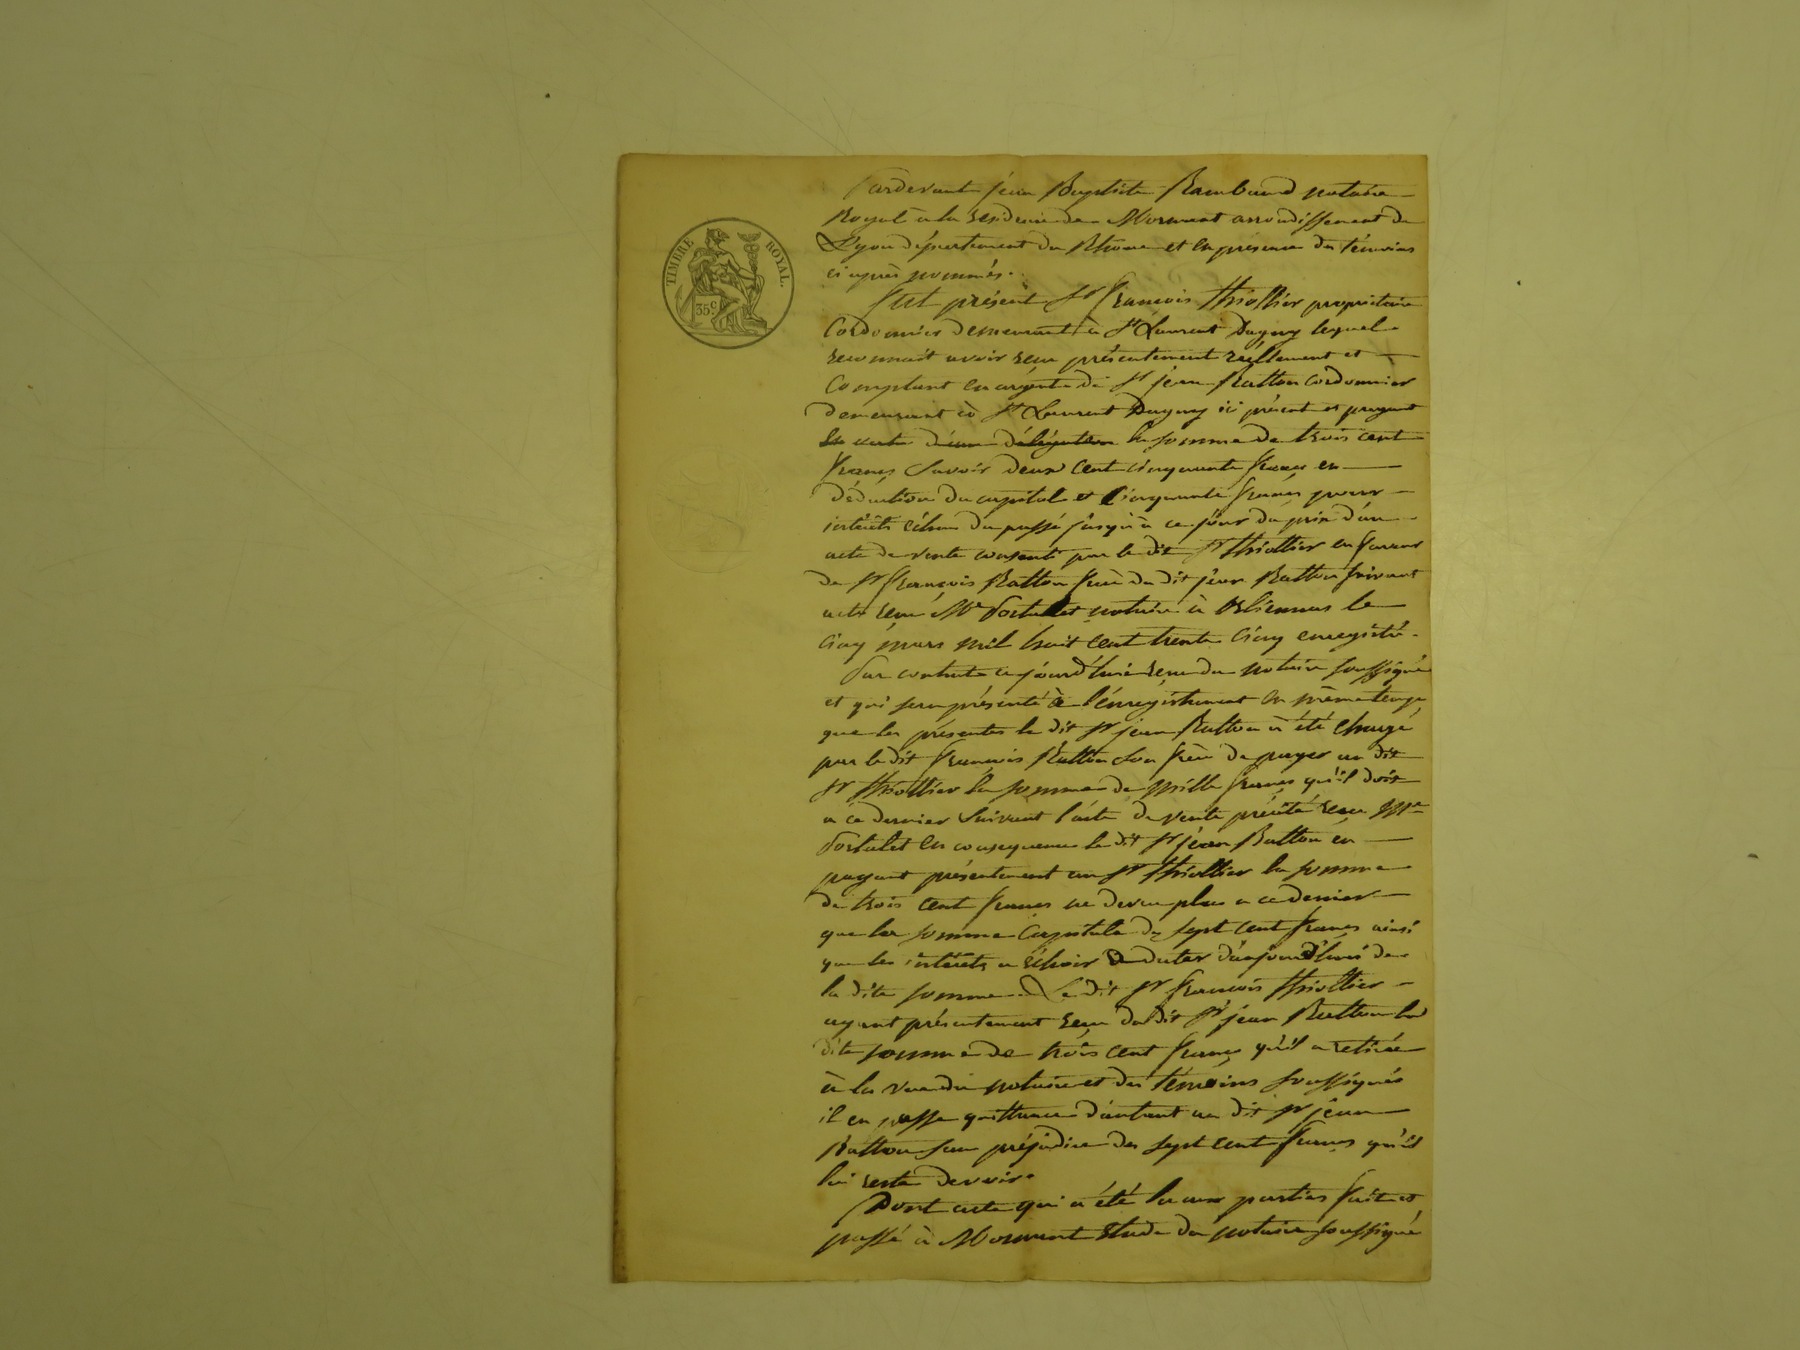 TIMBRE ROYAL.
35c
Pardevant jean Baptiste Rambaud notaire
Royal à la residence de Mornant arrondissement de
Lyon département du Rhône et en présence des témoins
ci après nommés.
Fut présent Sr François Thiollier propriétaire
Cordonnier demeurant à St Laurent Dagny lequel
reconnait avoir reçu présentement réellement et
Comptant en argent de Sr jean Ratton cordonnier
demeurant à St Laurent Dagny ici présent et payant
la somme de trois cent
francs Savoir deux cent cinquante francs en
déduction du capital et Cinquante francs pour
intérêts échus du passé jusqu'à ce jour du prix d'un
acte de vente consenti par le dit Sr Thiollier en faveur
de Sr François Ratton frère du dit jean Ratton suivant
acte reçu Me notaire à Orliennas le
cinq mars mil huit cent trente cinq enregistré.
Par contrat ce jourd'hui reçu du notaire soussigné
et qui sera présenté à l'énregistrement en même temps
que les présentes le dit Sr jean Ratton à été chargé
par le dit François Ratton son frère de payer au dit
Sr Thiollier la somme de Mille francs qu'il doit
a ce dernier Suivant l'acte de vente précité reçu Me
en consequence le dit Sr jean Ratton en
payant présentement au Sr Thiollier la somme
de trois cent francs ne devra plus a ce dernier
que la somme Capitale de sept cent francs ainsi
que les intérêts a échoir à dater d'aujourd'hui de
la dite somme. Le dit Sr François Thiollier
ayant présentement reçu du dit Sr jean Ratton la
dite somme de trois cent francs qu'il a retirée
à la vue du notaire et des témoins soussignés
il en passe quittance d'autant au dit Sr jean
Ratton sans préjudice des sept cent francs qu'il
lui reste devoir.
Dont acte qui a été lu aux parties fait et
passé à Mornant Etude du notaire soussigné